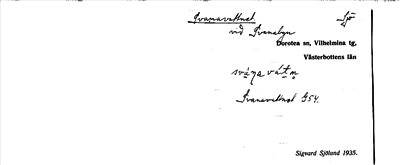 Svanavattnet Sjö
vid Svanabyn
Dorotea sn, Vilhelmina tg,
Västerbottens län
Svanavattnet G54.
Sigvard Sjölund 1935.